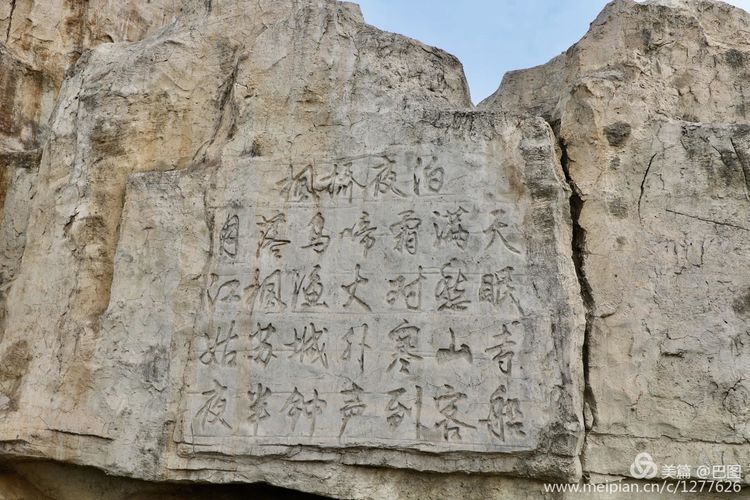 枫桥夜泊
月落乌啼霜满天
江枫渔火对愁眠
姑苏城外寒山寺
夜半钟声到客船
美篇 @巴图
www.meipian.cn/c/1277626